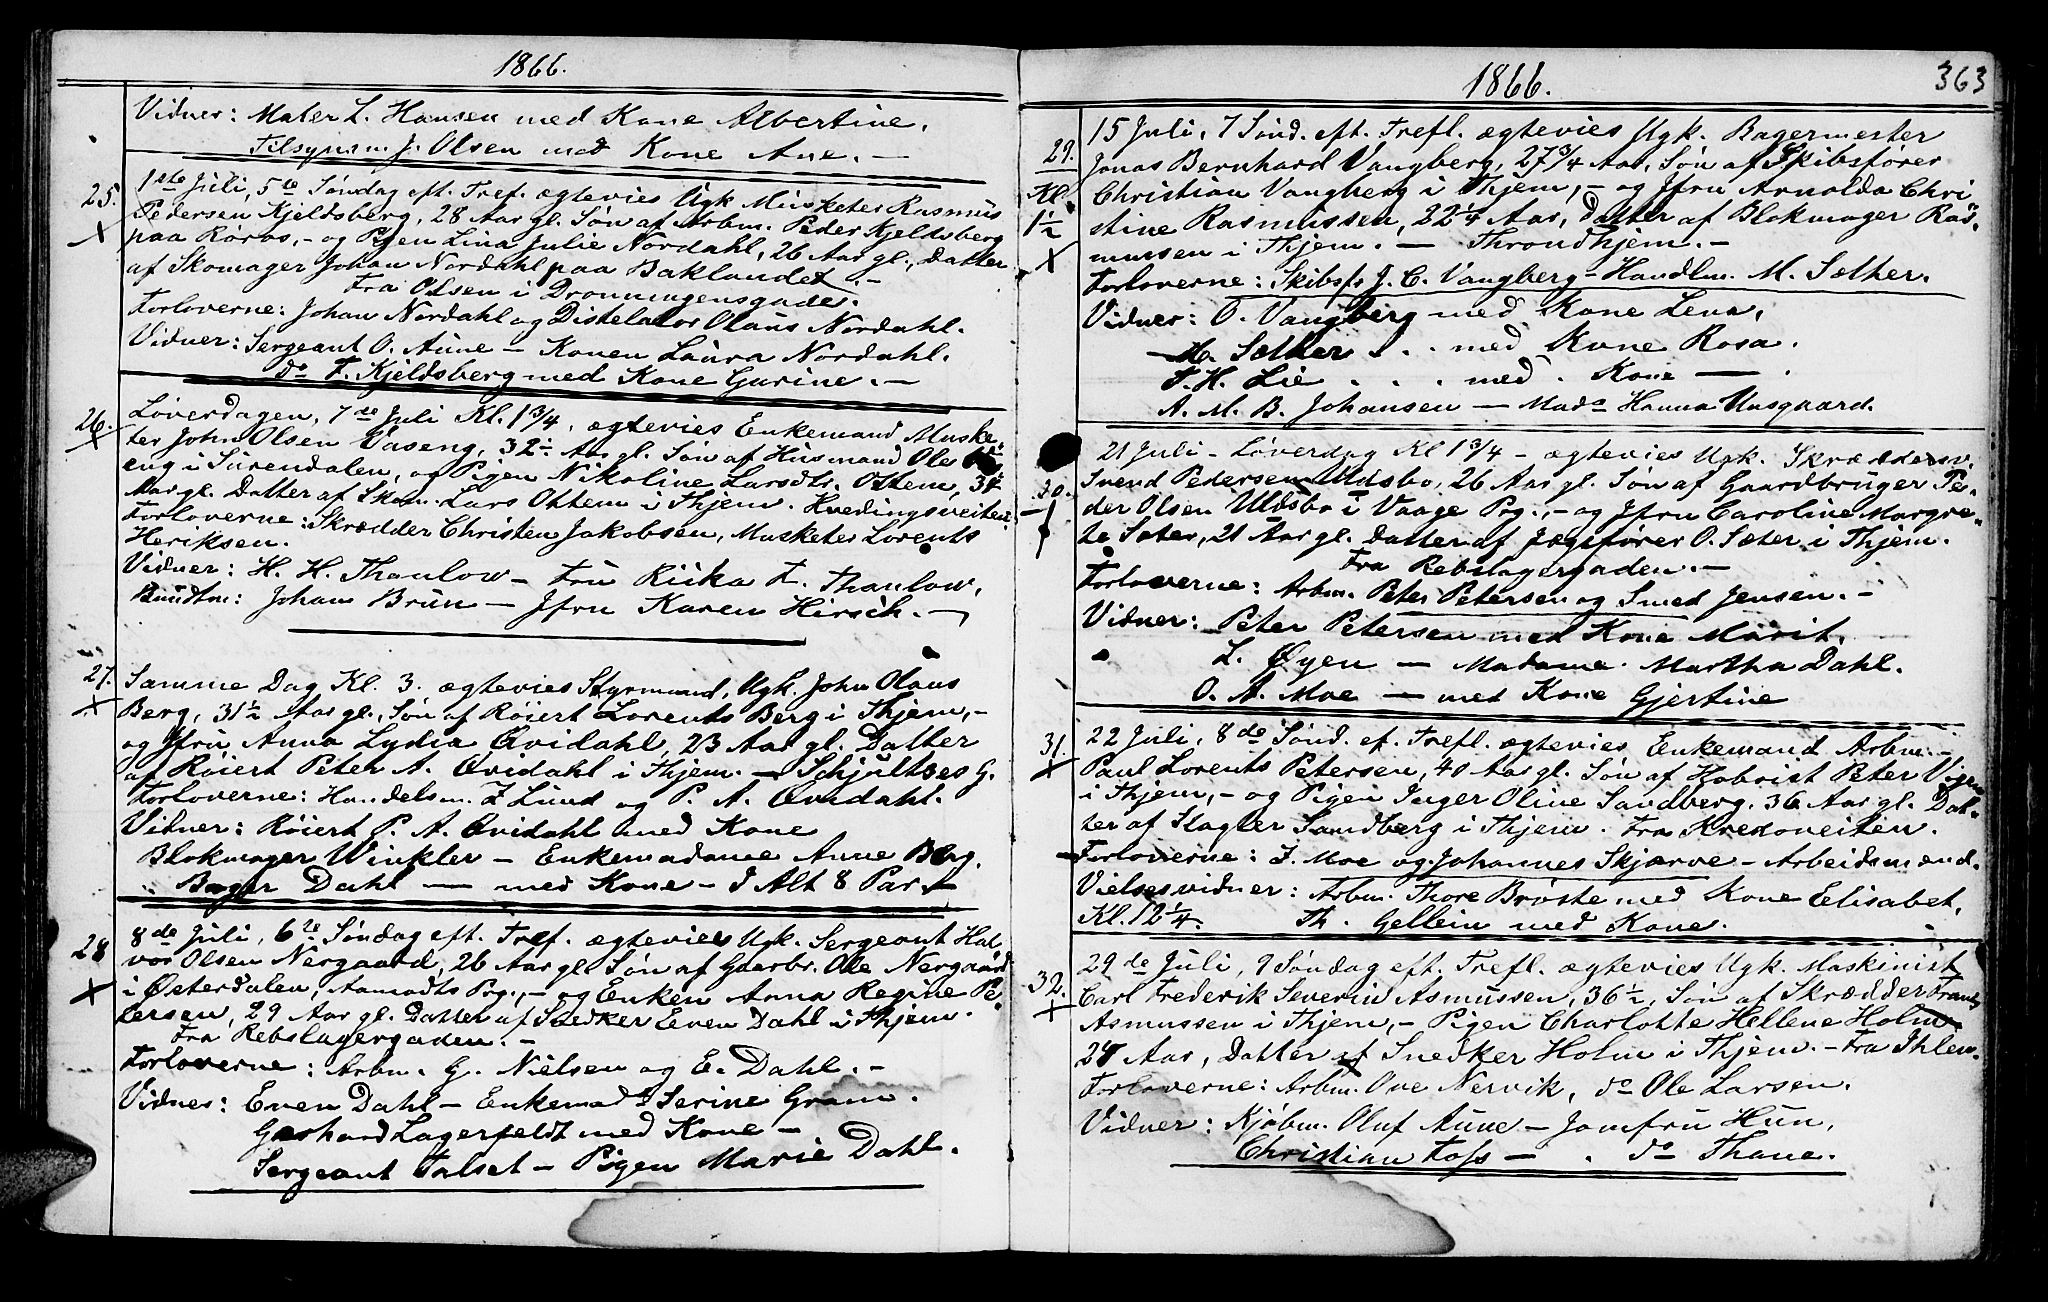 1866.
Vidner: Maler L. Hansen med Kone Albertine.
Tilsynsm J. Olsen med Kone Ane. —
25. 1ste Juli, 5te Søndag eft. Tref. ægtevies Ugk Musketer Rasmus
Pedersen Kjeldsberg, 28 Aar gl. Søn af Arbm. Peder Kjeldsberg
X paa Røros, - og Pigen Lina Julie Nordahl, 26 Aar gl., Datter
af Skomager Johan Nordahl paa Baklandet. -
Fra Olsen i Dronningensgade.
Forloverne: Johan Nordahl og Distelator Olaus Nordahl.
Vidner: Sergeant O. Aune - Konen Laura Nordahl.
do T. Kjeldsberg med Kone Gurine. —
26. Løverdagen, 7de Juli Kl. 1 3/4, ægtevies Enkemand Muske-
X ter John Olsen Vaseng, 32 1/2 Aar gl. Søn af Husmand Ole
eng i Surendalen, og Pigen Nikoline Larsdtr. Ottem, 34
Aar gl. Datter af Skom. Lars Ottem i Thjem. Hvedingsveiten
Forloverne: Skrædder Christen Jakobsen, Musketer Lorents
Heriksen.
Vidner: H. H. Thaulow - Fru Riika T. Thaulow,
Buudtm: Johan Brun - Jfru Karen Hirsch. —
27. Samme Dag Kl. 3. ægtevies Styrmand, Ugk. John Olaus
X Berg, 31 1/2 Aar gl., Søn af Røiert Lorents Berg i Thjem, -
og Jfru Anna Lydia Qvidahl, 23 Aar gl. Datter
af Røiert Peter A. Qvidahl i Thjem. — Schjultzes G.
Forloverne: Handelsm. Z Lund og P. A. Qvidahl.
Vidner: Røiert P. A. Qvidahl med Kone
Blokmager Winkler - Enkemadame Anne Berg.
Bager Dahl — med Kone - I Alt 8 Par. —
28 8de Juli, 6te Søndag eft. Tref. ægtevies Ugk. Sergeant Hal-
vor Olsen Nergaard, 26 Aar gl Søn af Gaarbr. Ole Nergaard
X i Østerdalen, Aamodts Prg., - og Enken Anna Regine Pe-
tersen, 29 Aar gl. Datter af Snedker Even Dahl i Thjem.
Fra Rebslagergaden. -
Forloverne: Arbm. G. Nielsen og E. Dahl. -
Vidner: Even Dahl - Enkemad. Serine Gram.
Gerhard Lagerfeldt med Kone -
Sergeant Talset - Pigen Marie Dahl.
1866. 363
29. 15 Juli, 7 Sönd. eft. Trefl. ægtevies Ugk. Bagermester
Jonas Bernhard Vangberg, 27 3/4 Aar, Søn af Skibsfører
Kl. Christian Vangberg i Thjem, - og Jfru Arnolda Chri-
1 1/2 stine Rasmussen, 22 1/4 Aar, Datter af Blokmager Ras-
X mussen i Thjem. — Throndhjem. -
Forloverne: Skibsfr J. C. Vangberg - Handlm. M. Sæther.
Vidner: O. Vangberg med Kone Lena,
M. Sæther . . . med Kone Rosa.
T. H. Lie . . . med . Kone — .
A. M. B. Johansen — Mada Hanna Uusgaard.
30. 21 Juli - Løverdag Kl 1 3/4 - ægtevies Ugk. Skræddersv.
Svend Pedersen Uldsbo, 26 Aar gl. Søn af Gaardbruger Pe-
der Olsen Uldsbo i Vaage Prg., - og Jfru Caroline Margre-
te Sæter, 21 Aar gl. Datter af Jægtfører O. Sæter i Thjem.
Fra Rebslagergaden. -
Forloverne: Arbm. Peter Petersen og Smed Jensen. -
Vidner: Peter Petersen med Kone Marit.
L. Øyen — Madame. Martha Dahl.
O. A. Moe — med Kone Gjertine
31. 22 Juli, 8de Sönd. ef. Trefl. ægtevies Enkemand Arbm. -
X Paul Lorents Petersen, 40 Aar gl. Søn af Haboist Peter
i Thjem, - og Pigen Inger Oline Sandberg, 36 Aar gl. Dat-
ter af Slagter Sandberg i Thjem. Fra Kredoveiten.
Forloverne: J. Moe og Johannes Skjærve - Arbeidsmænd.
Vielsesvidner: Arbm. Thore Brøste med Kone Elisabet,
Kl. 12 1/4. Th. Gellein med Kone.
32. 29de Juli, 9 Søndag eft. Trefl. ægtevies Ugk. Maskinist
X Carl Frederik Severin Asmussen, 36 1/2, Søn af Skrædder Frants
Asmussen i Thjem, - Pigen Charlotte Hellene Holm
27 Aar, Datter af Snedker Holm i Thjem. - Fra Ihlen.
Forloverne: Arbm. Ove Nervik, do Ole Larsen.
Vidner: Kjøbm. Oluf Aune - Jomfru Hun,
Christian Foss — . do Thane.